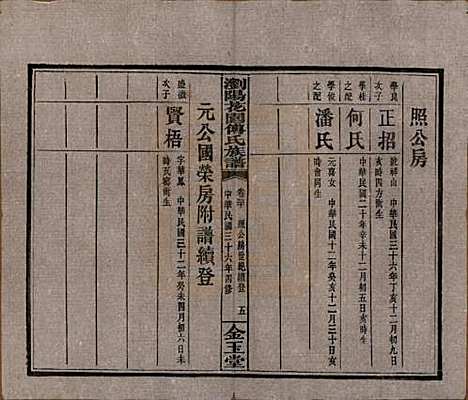 照公房
學良
次子
正招
派祥山 中華民國三十六年丁亥十二月初九日
亥時四方術生
學桂
之配
何氏
中華民國二十年辛未十二月初五日亥時生
學俊
之配
潘氏
元嘉女 中華民國十二年癸亥十二月三十日亥
時會同生
瀏陽老園傅氏族譜
卷二十 照公房世紀續登 五
中華民國三十六年四修
金玉堂
元公國榮房附譜續登
盛徵
次子
賢梧
字華鳳 中華民國三十二年癸未四月初六日未
時瓦窯衝生